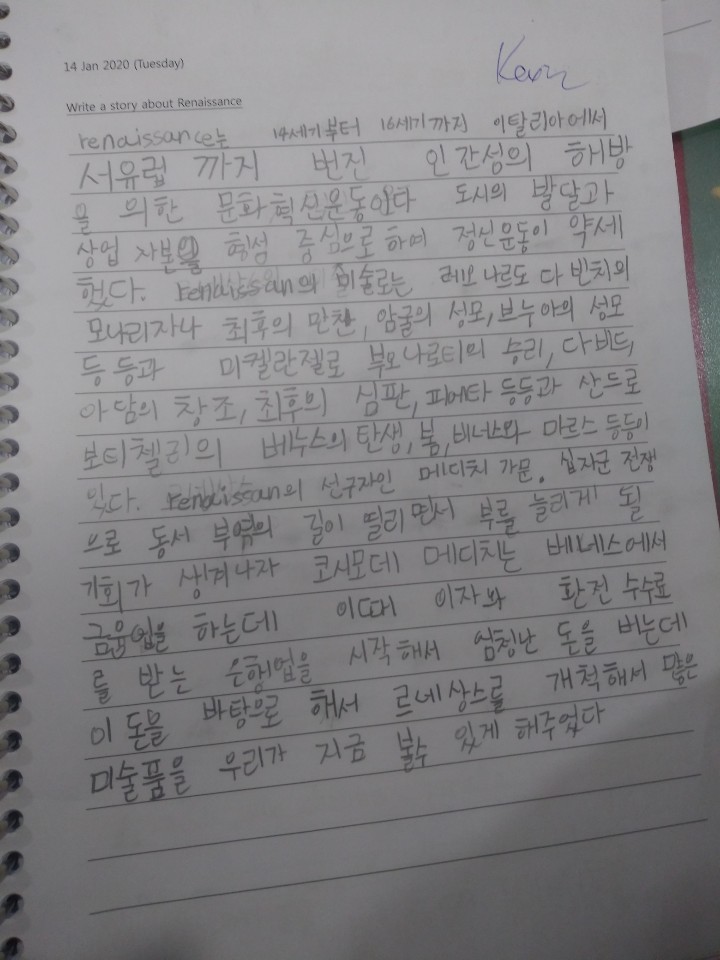 14 Jan 2020 (Tuesday)
Kevin
Write a story about Renaissance
renaissance는 14세기부터 16세기까지 이탈리아에서
서유럽 까지 번진 인간성의 해방
을 의한 문화혁신운동이다 도시의 발달과
상업 자본을 형성 중심으로 하여 정신운동이 약세
했다. renaissan의 미술로는 레오나르도 다 빈치의
모나리자나 최후의 만찬, 암굴의 성모, 브누아의 성모
등 등과 미켈란젤로 부오나로티의 승리, 다비드,
아담의 창조, 최후의 심판, 피에타 등등과 산드로
보티첼리의 베누스의 탄생, 봄, 비너스와 마르스 등등이
있다. renaissan의 선구자인 메디치 가문. 십자군 전쟁
으로 동서 무역의 길이 열리면서 부를 늘리게 될
기회가 생겨나자 코시모데 메디치는 베네스에서
금융업을 하는데 이때 이자와 환전 수수료
를 받는 은행업을 시작해서 엄청난 돈을 버는데
이 돈을 바탕으로 해서 르네상스를 개척해서 많은
미술품을 우리가 지금 볼수 있게 해주었다